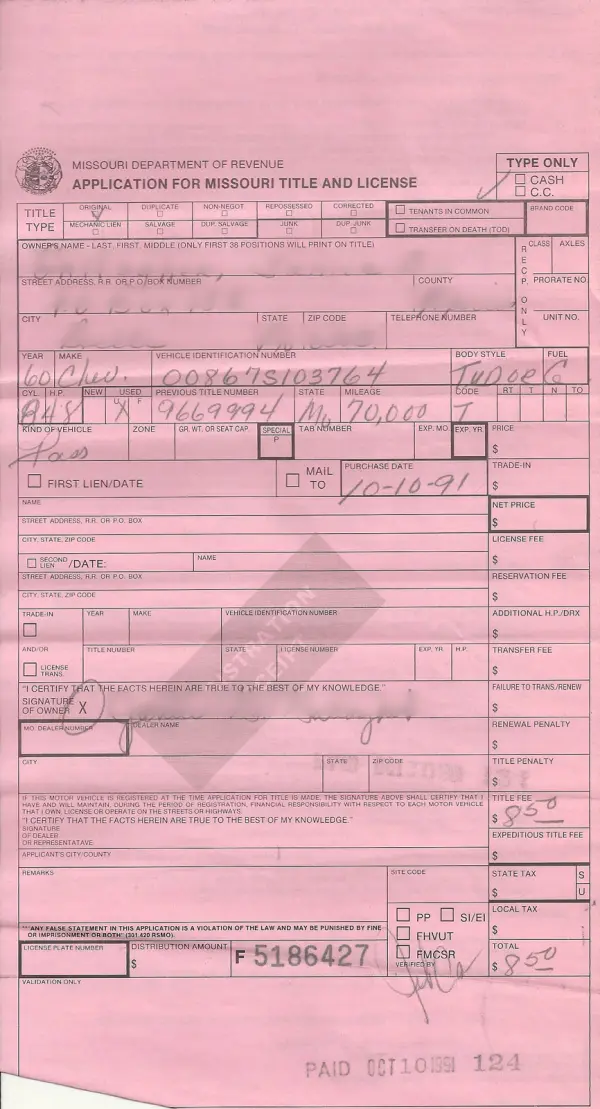 MISSOURI DEPARTMENT OF REVENUE
APPLICATION FOR MISSOURI TITLE AND LICENSE
TYPE ONLY
CASH
C.C.
TITLE TYPE
ORIGINAL DUPLICATE NON-NEGOT REPOSSESSED CORRECTED
MECHANIC LIEN SALVAGE DUP. SALVAGE JUNK DUP. JUNK
TENANTS IN COMMON
TRANSFER ON DEATH (TOD)
BRAND CODE
OWNER'S NAME - LAST, FIRST, MIDDLE (ONLY FIRST 38 POSITIONS WILL PRINT ON TITLE)
RECP. ONLY
CLASS AXLES
STREET ADDRESS, R.R. OR P.O. BOX NUMBER COUNTY PRORATE NO.
CITY STATE ZIP CODE TELEPHONE NUMBER UNIT NO.
YEAR MAKE VEHICLE IDENTIFICATION NUMBER BODY STYLE FUEL
60 Chev. 00867S103764 TuDoe G
CYL. H.P. NEW USED PREVIOUS TITLE NUMBER STATE MILEAGE CODE RT. T N TO
U F
48 X 9669994 Mo 70,000 T
KIND OF VEHICLE ZONE GR. WT. OR SEAT CAP. SPECIAL P TAB NUMBER EXP. MO. EXP. YR. PRICE
Pass $
FIRST LIEN/DATE MAIL TO PURCHASE DATE TRADE-IN
10-10-91 $
NAME NET PRICE
$
STREET ADDRESS, R.R. OR P.O. BOX
CITY, STATE, ZIP CODE LICENSE FEE
SECOND LIEN /DATE: NAME $
STREET ADDRESS, R.R. OR P.O. BOX RESERVATION FEE
CITY, STATE, ZIP CODE $
TRADE-IN YEAR MAKE VEHICLE IDENTIFICATION NUMBER ADDITIONAL H.P./DRX
$
AND/OR TITLE NUMBER STATE LICENSE NUMBER EXP. YR. H.P. TRANSFER FEE
LICENSE TRANS. $
"I CERTIFY THAT THE FACTS HEREIN ARE TRUE TO THE BEST OF MY KNOWLEDGE." FAILURE TO TRANS./RENEW
SIGNATURE OF OWNER X $
MO. DEALER NUMBER DEALER NAME RENEWAL PENALTY
$
CITY STATE ZIP CODE TITLE PENALTY
$
IF THIS MOTOR VEHICLE IS REGISTERED AT THE TIME APPLICATION FOR TITLE IS MADE, THE SIGNATURE ABOVE SHALL CERTIFY THAT I
HAVE AND WILL MAINTAIN, DURING THE PERIOD OF REGISTRATION, FINANCIAL RESPONSIBILITY WITH RESPECT TO EACH MOTOR VEHICLE
THAT I OWN, LICENSE OR OPERATE ON THE STREETS OR HIGHWAYS.
TITLE FEE
$ 8.50
"I CERTIFY THAT THE FACTS HEREIN ARE TRUE TO THE BEST OF MY KNOWLEDGE."
SIGNATURE
OF DEALER
OR REPRESENTATIVE
EXPEDITIOUS TITLE FEE
$
APPLICANT'S CITY/COUNTY
REMARKS SITE CODE STATE TAX S
$ U
PP SI/EI LOCAL TAX
FHVUT $
FMCSR
VERIFIED BY
"ANY FALSE STATEMENT IN THIS APPLICATION IS A VIOLATION OF THE LAW AND MAY BE PUNISHED BY FINE
OR IMPRISONMENT OR BOTH" (301.420 RSMO).
LICENSE PLATE NUMBER DISTRIBUTION AMOUNT F 5186427 TOTAL
$ $ 8.50
VALIDATION ONLY
PAID OCT 10 1991 124